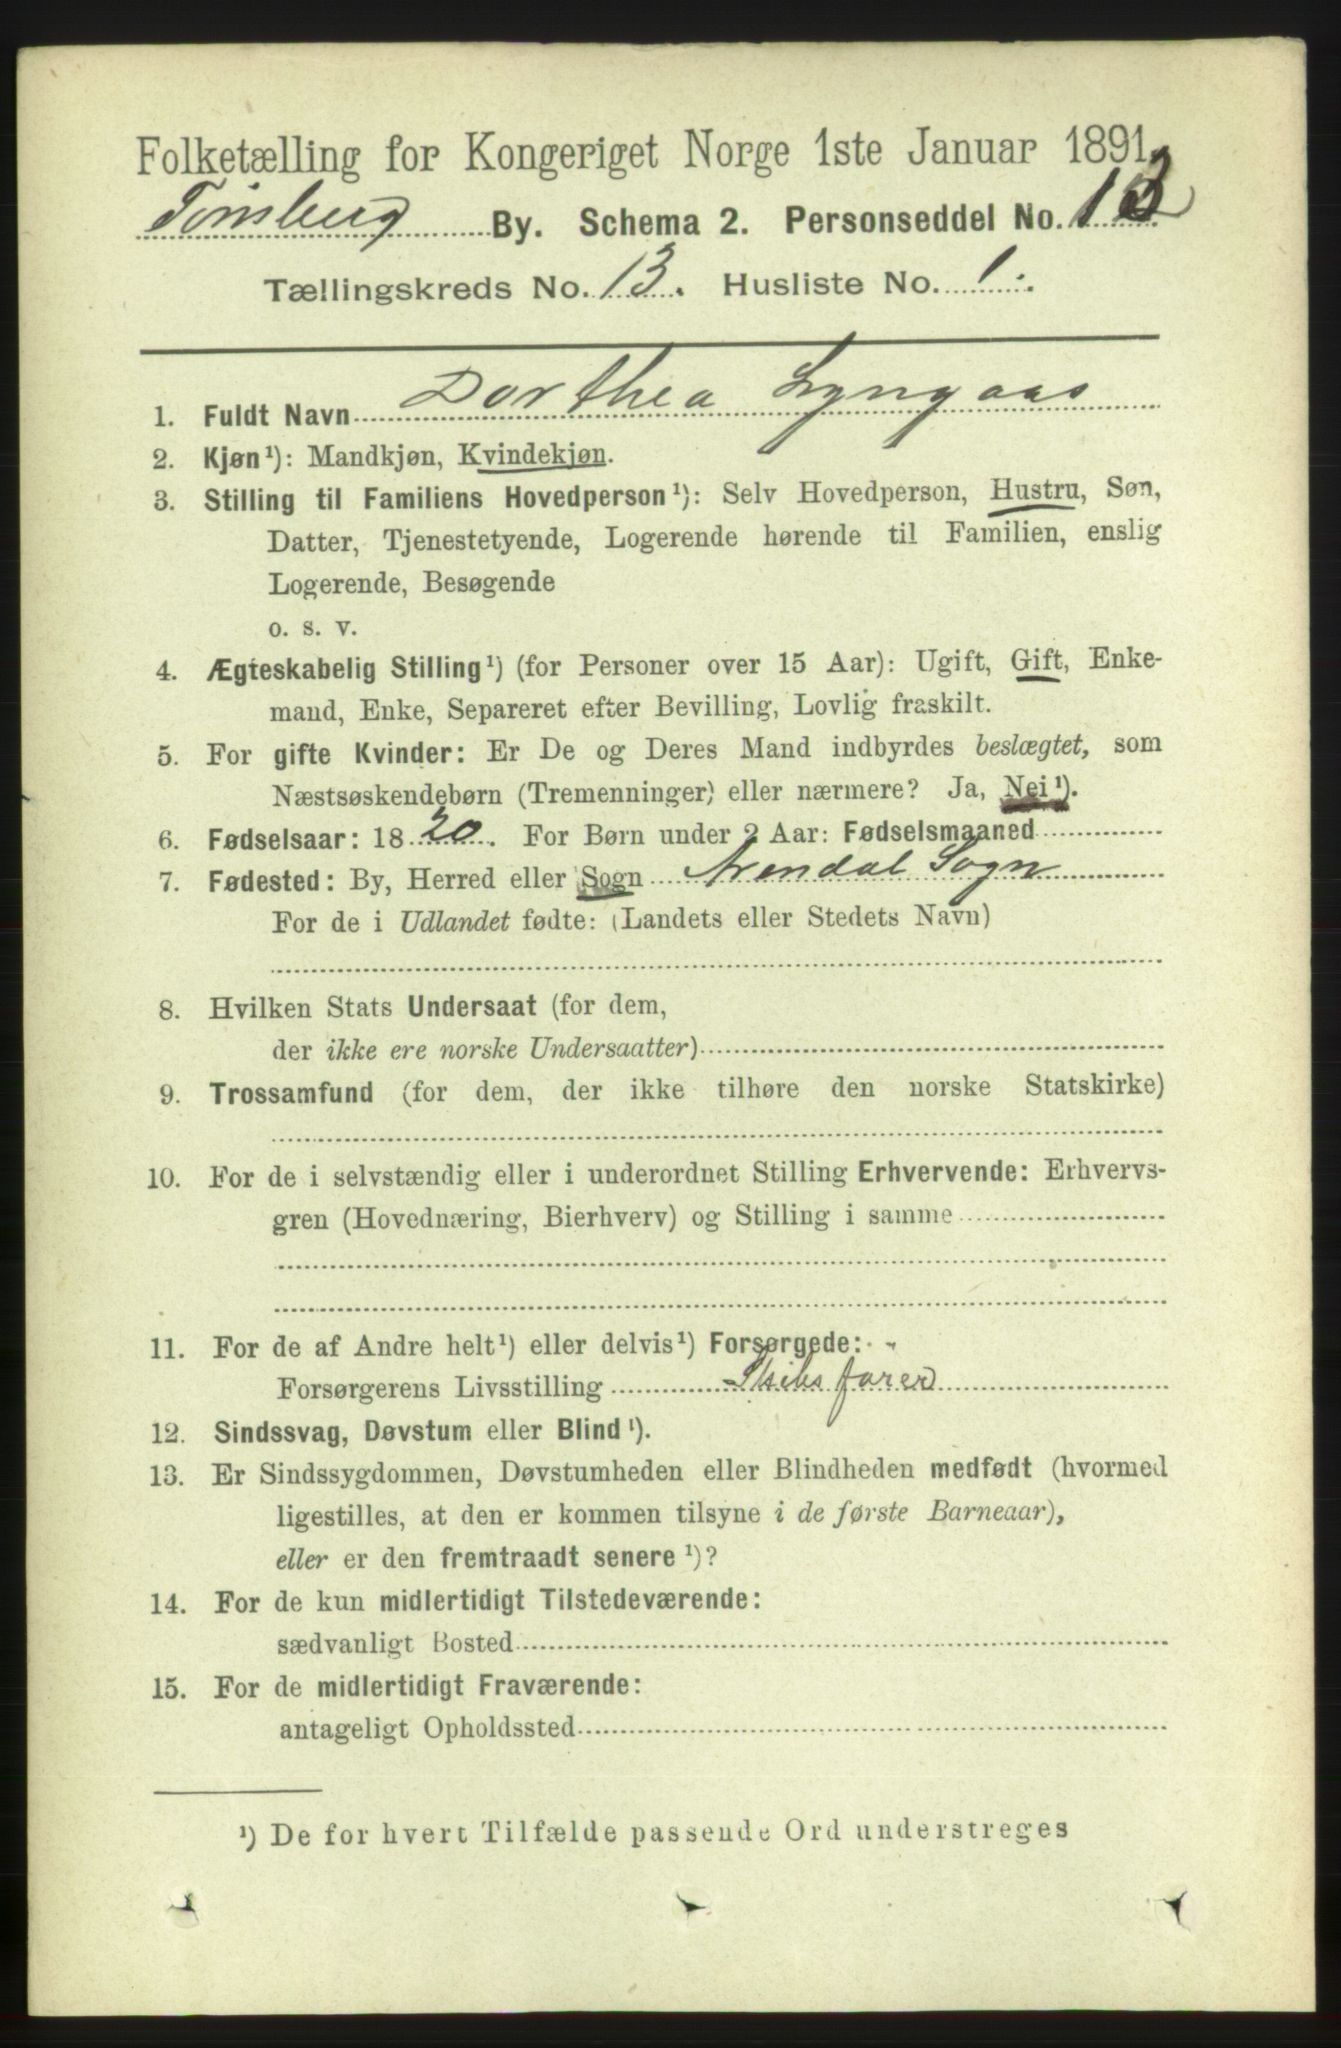 Folketælling for Kongeriget Norge 1ste Januar 1891.
Tønsberg By. Schema 2. Personseddel No. 12
Tællingskreds No. 13. Husliste No. 1.
1. Fuldt Navn Dorthea Lyngaas
2. Kjøn¹): Mandkjøn, Kvindekjøn.
3. Stilling til Familiens Hovedperson¹): Selv Hovedperson, Hustru, Søn,
Datter, Tjenestetyende, Logerende hørende til Familien, enslig
Logerende, Besøgende
o. s. v.
4. Ægteskabelig Stilling¹) (for Personer over 15 Aar): Ugift, Gift, Enke-
mand, Enke, Separeret efter Bevilling, Lovlig fraskilt.
5. For gifte Kvinder: Er De og Deres Mand indbyrdes beslægtet, som
Næstsøskendebørn (Tremenninger) eller nærmere? Ja, Nei¹).
6. Fødselsaar: 1820. For Børn under 2 Aar: Fødselsmaaned
7. Fødested: By, Herred eller Sogn Arendal Sogn
For de i Udlandet fødte: (Landets eller Stedets Navn)
8. Hvilken Stats Undersaat (for dem,
der ikke ere norske Undersaatter)
9. Trossamfund (for dem, der ikke tilhøre den norske Statskirke)
10. For de i selvstændig eller i underordnet Stilling Erhvervende: Erhvervs-
gren (Hovednæring, Bierhverv) og Stilling i samme
11. For de af Andre helt¹) eller delvis¹) Forsørgede:
Forsørgerens Livsstilling Skibsfører
12. Sindssvag, Døvstum eller Blind¹).
13. Er Sindssygdommen, Døvstumheden eller Blindheden medfødt (hvormed
ligestilles, at den er kommen tilsyne i de første Barneaar),
eller er den fremtraadt senere¹)?
14. For de kun midlertidigt Tilstedeværende:
sædvanligt Bosted
15. For de midlertidigt Fraværende:
antageligt Opholdssted
¹) De for hvert Tilfælde passende Ord understreges